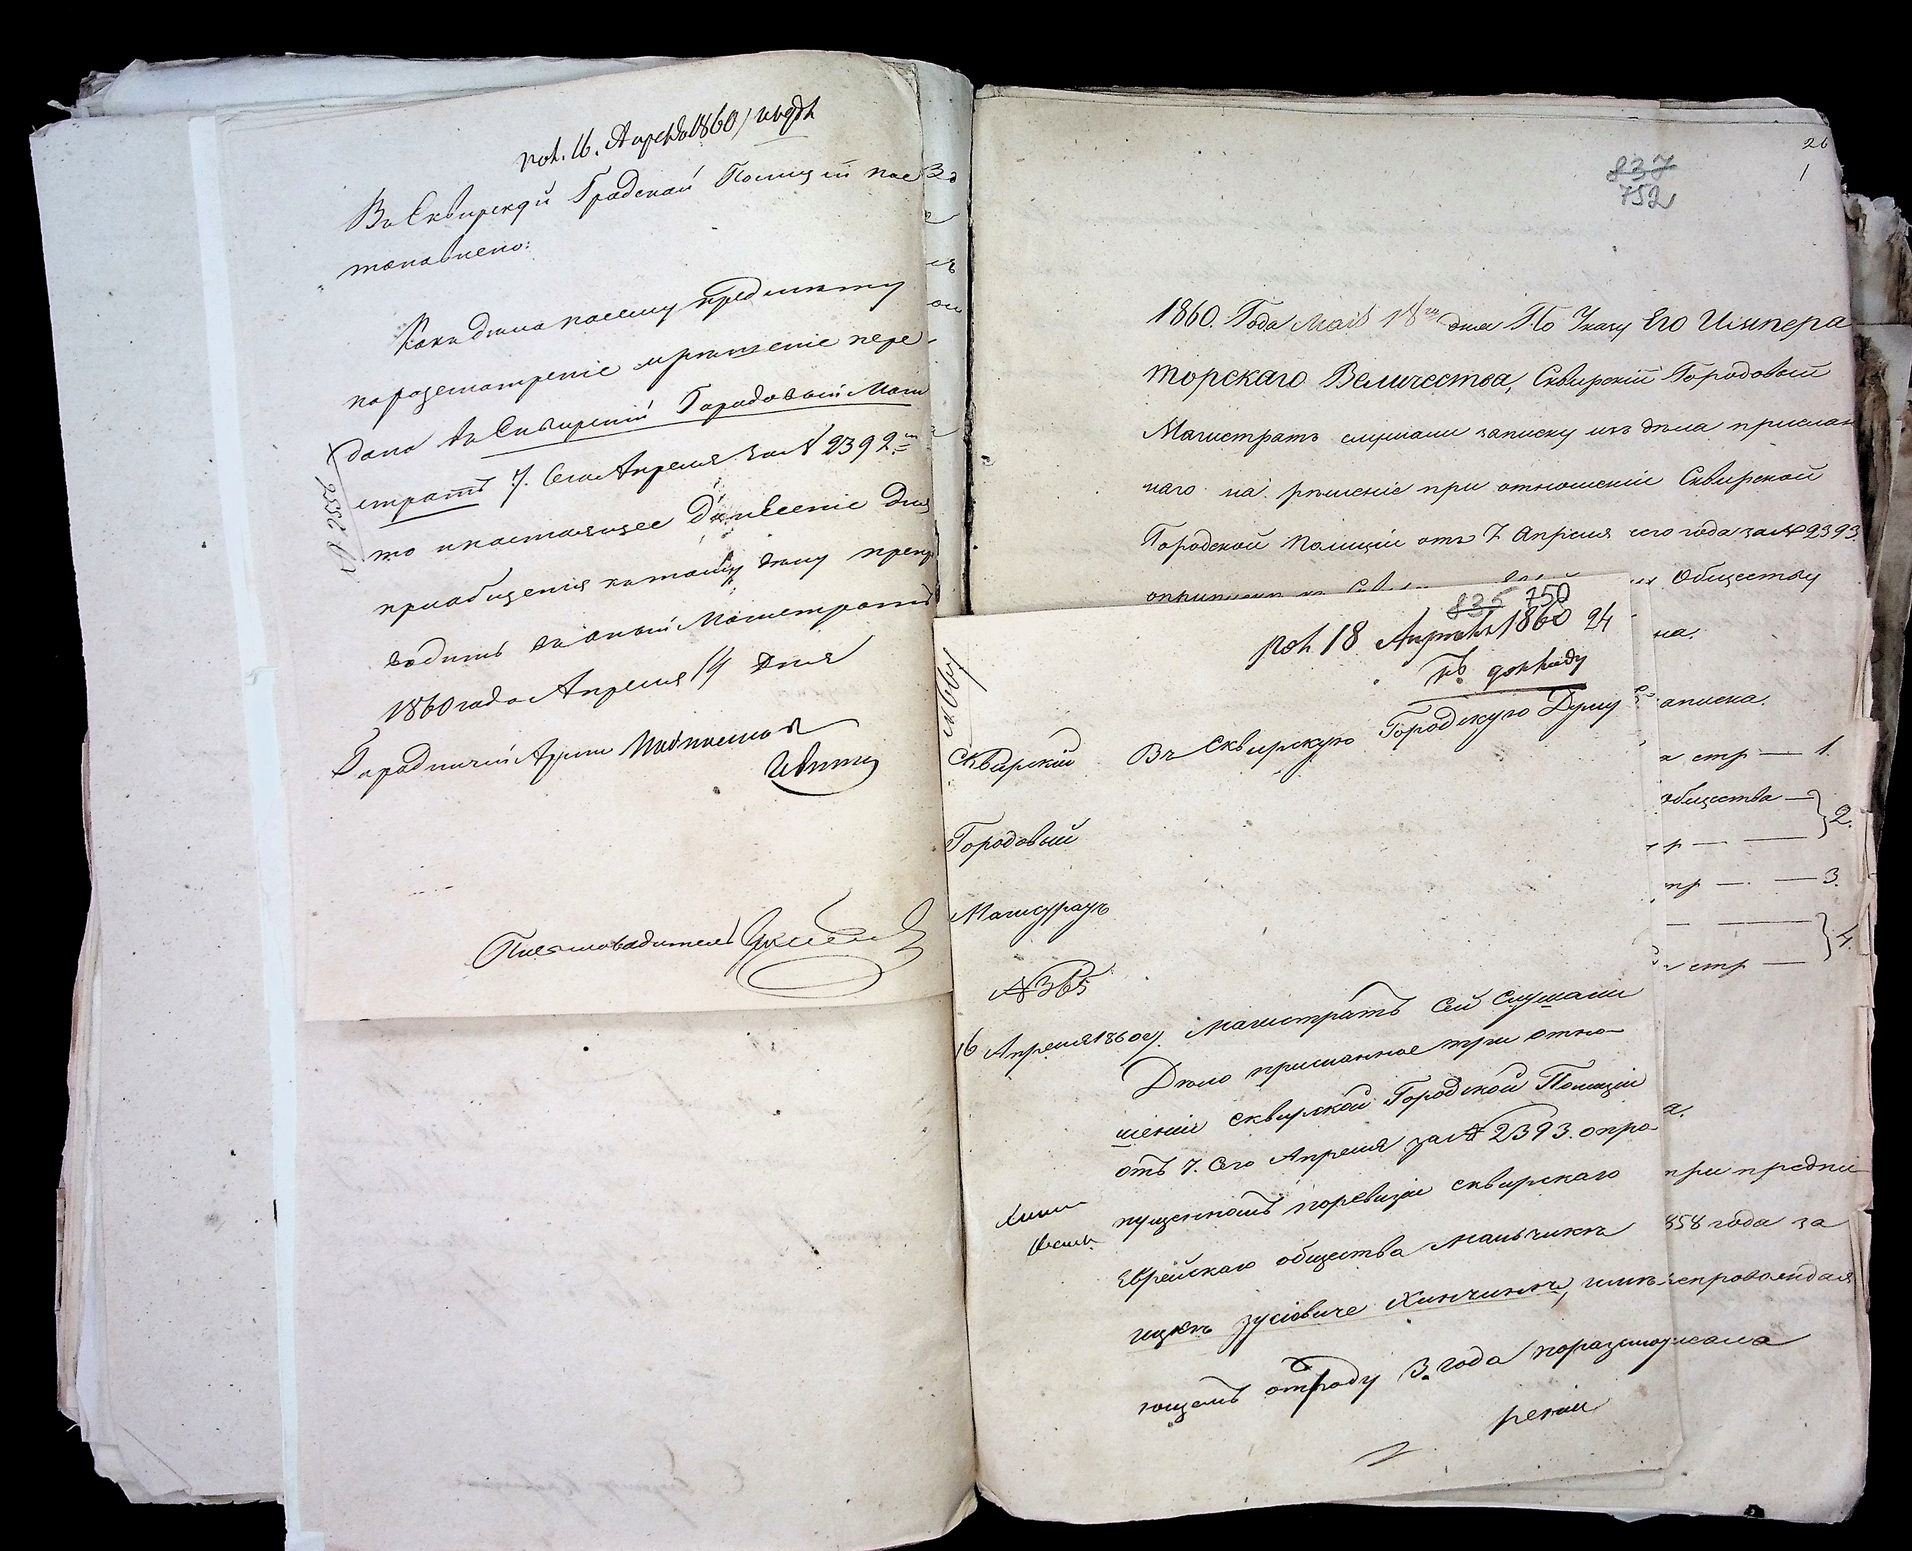 пол. 16. Апреля 1860 /
Въ Сквирской Градской Полиціи пос
тановлено:
Какъ дѣло по сему предмету
на разсмотреніе и рѣшеніе пере
дано въ Сквирскій Городовый Маги
стратъ 7. Сего Апреля за № 2392
то настоящее донесеніе для
пріобщенія къ тому дѣлу препро
водить въ оный Магистратъ
1860 года Апреля 14 Дня
Городничій
Письмоводитель
26
1
837
752
1860. Года Мая 18го дня По Указу Его Импера
торскаго Величества, Сквирскій Городовый
Магистратъ слушали записку изъ дѣла прислан
наго на рѣшеніе при отношеніи Сквирской
Городской Полиціи отъ 7 Апреля сего года за № 2393
Обществу
на.
аписка.
стр — 1.
общества — 2.
3.
4.
стр —
при предпи
858 года за
835 750
пол. 18 Апреля 1860 24
къ докладу
Сквирскій
Городовый
Магистратъ
№ 365
16 Апреля 1860 г.
Въ Сквирскую Городскую Думу
Магистратъ Сей Слушали
Дѣло присланное при отно-
шеніи Сквирской Городской Полиціи
отъ 7. Сего Апреля за № 2393. о про-
пущенномъ по ревизіи Сквирскаго
Еврейскаго общества Мальчикѣ
Ицкѣ Зусіовиче Хинчинѣ, имѣ
ющемъ отъ роду 3. года по разсмот
реніи